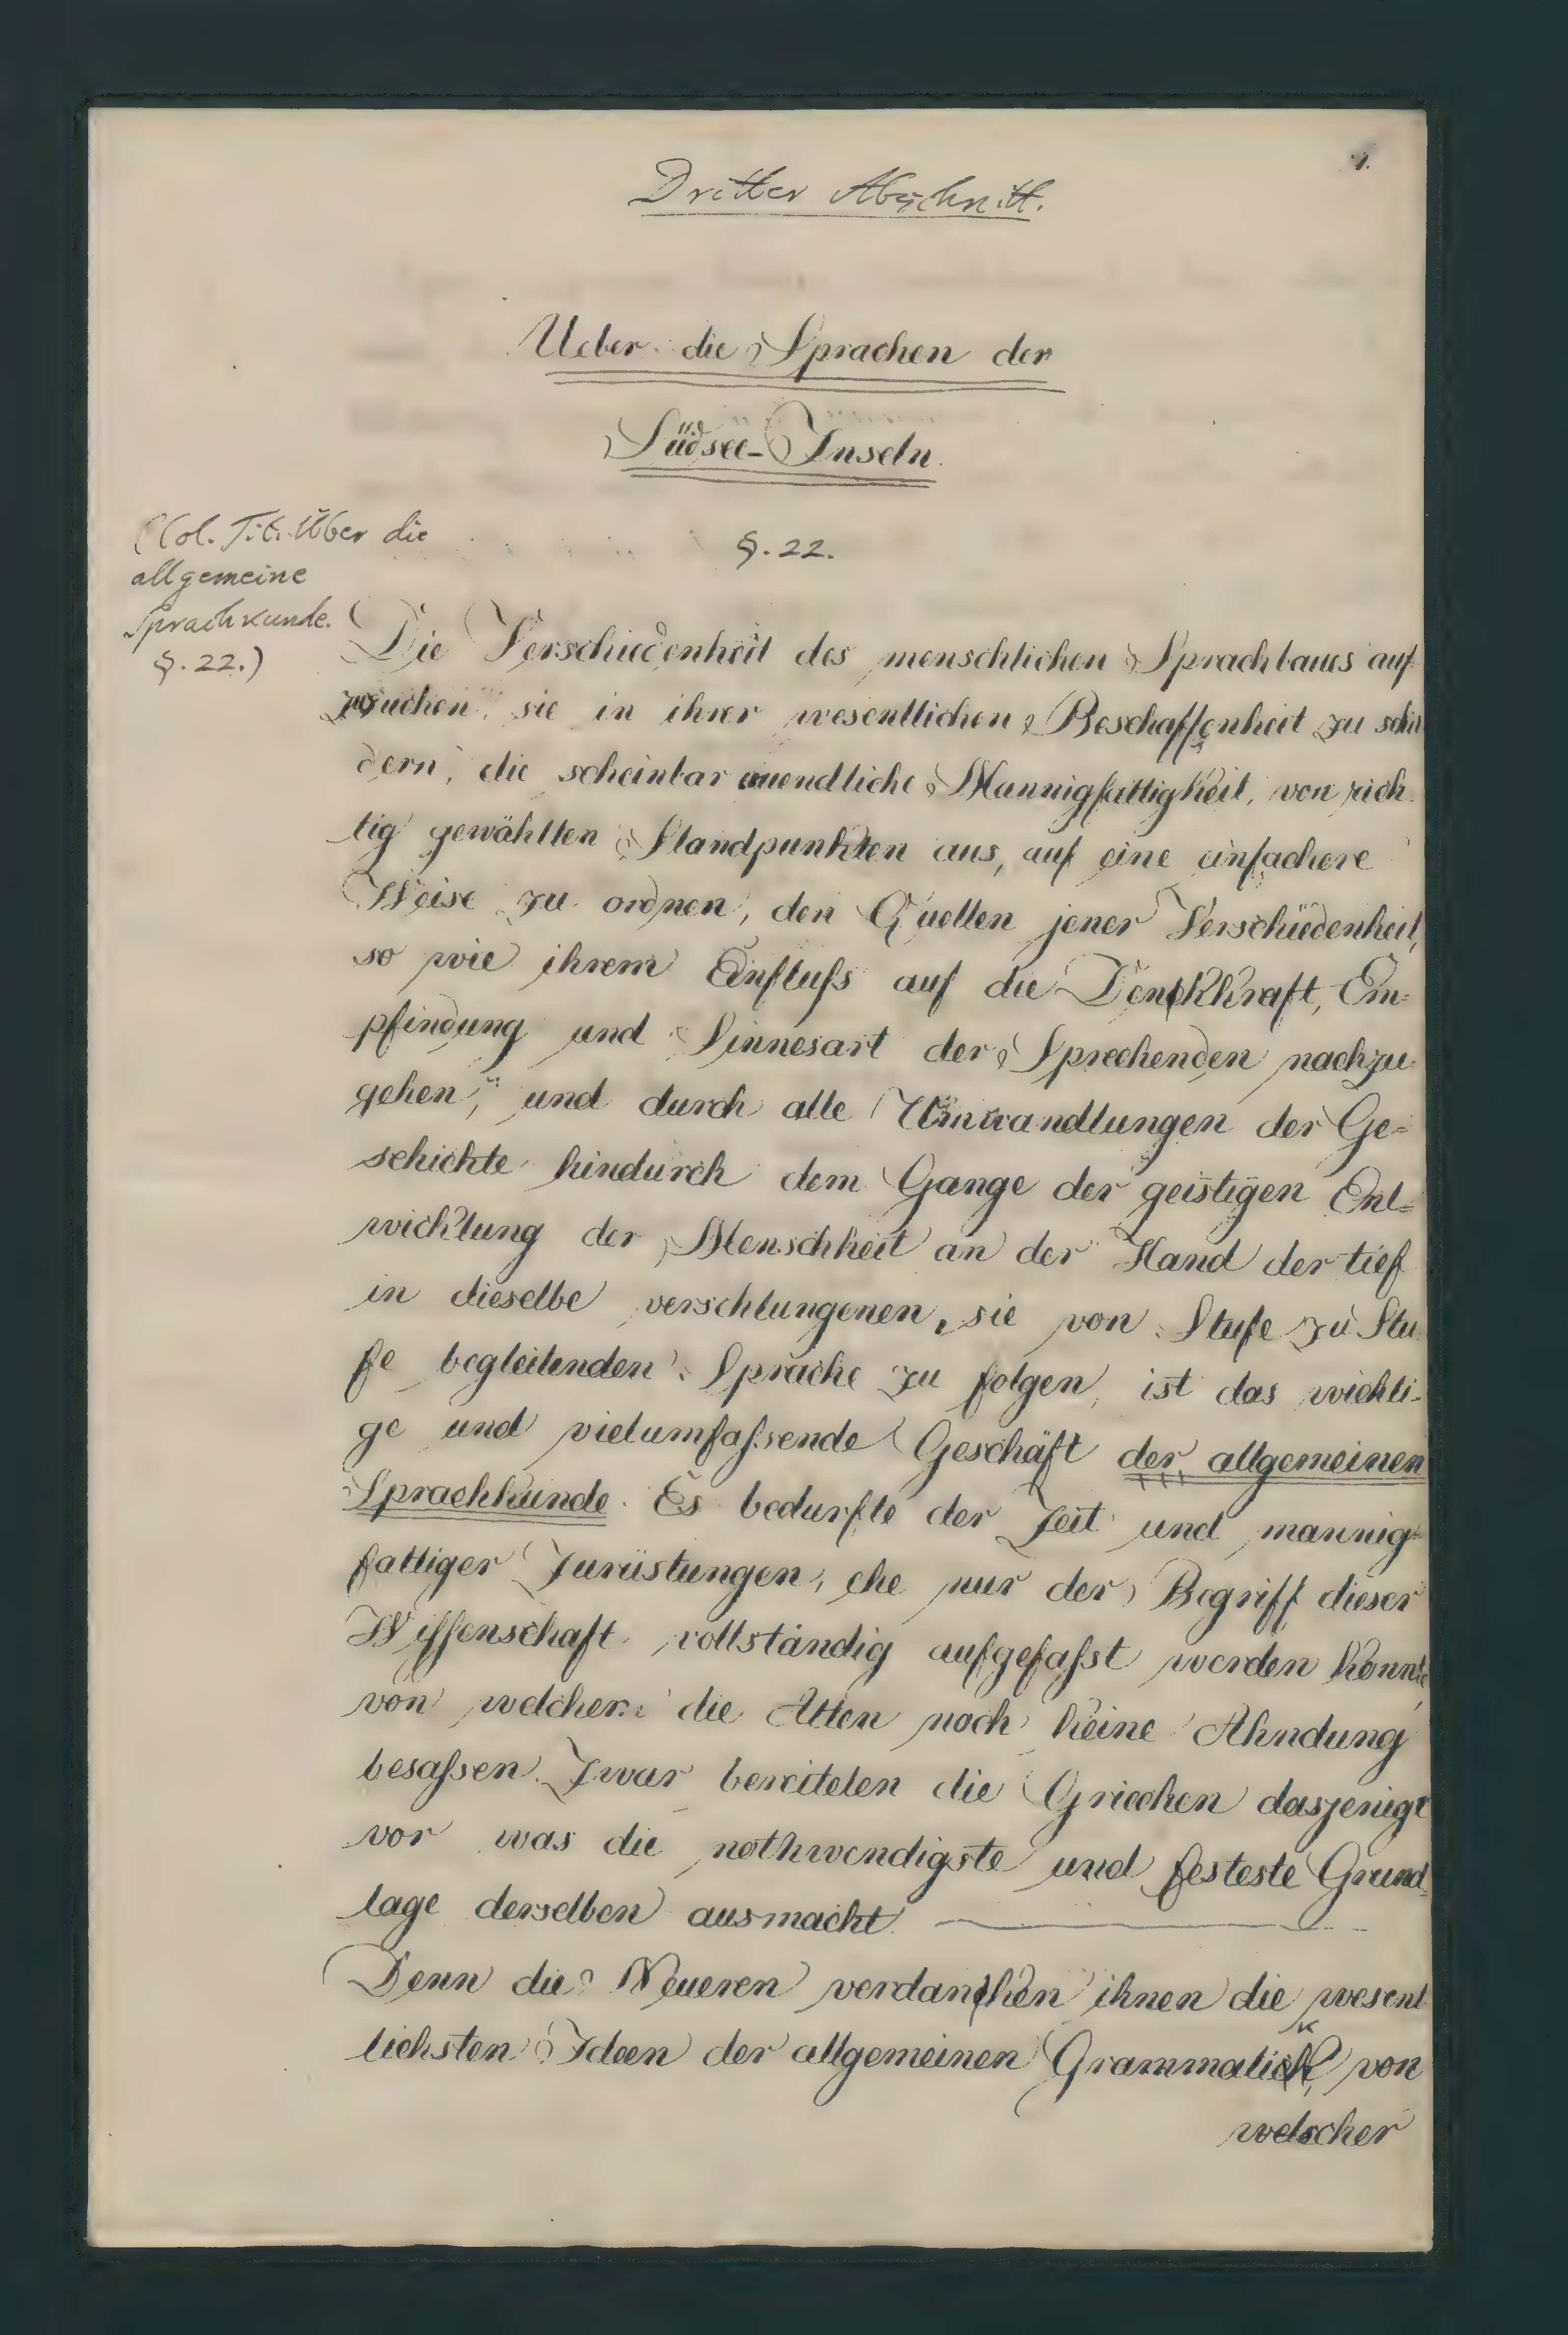 1.
Dritter Abschnitt.
Ueber die Sprachen der
Südsee-Inseln.
(Col. Tit. Über die
allgemeine
Sprachkunde.
§. 22.)
§. 22.
Die Verschiedenheit des menschlichen Sprachbaues auf-
zusuchen, sie in ihrer wesentlichen Beschaffenheit zu schil
dern, die scheinbar unendliche Mannigfaltigkeit, von rich-
tig gewählten Standpunkten aus, auf eine einfachere
Weise zu ordnen, den Quellen jener Verschiedenheit,
so wie ihrem Einfluſs auf die Denkkraft, Em-
pfindung und Sinnesart der Sprechenden nachzu-
gehen, und durch alle Umwandlungen der Ge-
schichte hindurch dem Gange der geistigen Ent-
wicklung der Menschheit an der Hand der tief
in dieselbe verschlungenen, sie von Stufe zu Stu-
fe begleitenden Sprache zu folgen, ist das wichti-
ge und vielumfaſsende Geschäft der allgemeinen
Sprachkunde. Es bedurfte der Zeit und mannig-
faltiger Zurüstungen, ehe nur der Begriff dieser
Wiſſenschaft vollständig aufgefaſst werden konnte,
von welcher die Alten noch keine Ahndung
besaſsen. Zwar bereiteten die Griechen dasjenige
vor was die nothwendigste und festeste Grund-
lage derselben ausmacht.
Denn die Neueren verdanken ihnen die wesent-
lichsten Ideen der allgemeinen Grammatik, von
welcher